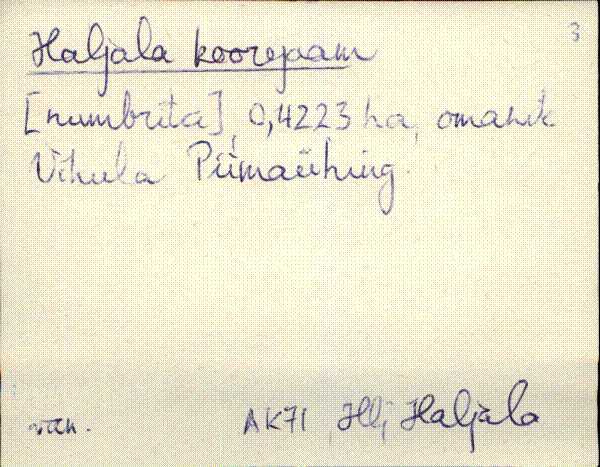 3
Haljala koorejaam
[numbrita], 0,4223 ha, omanik
Vihula Piimaühing.
AK71 Hlj Haljala